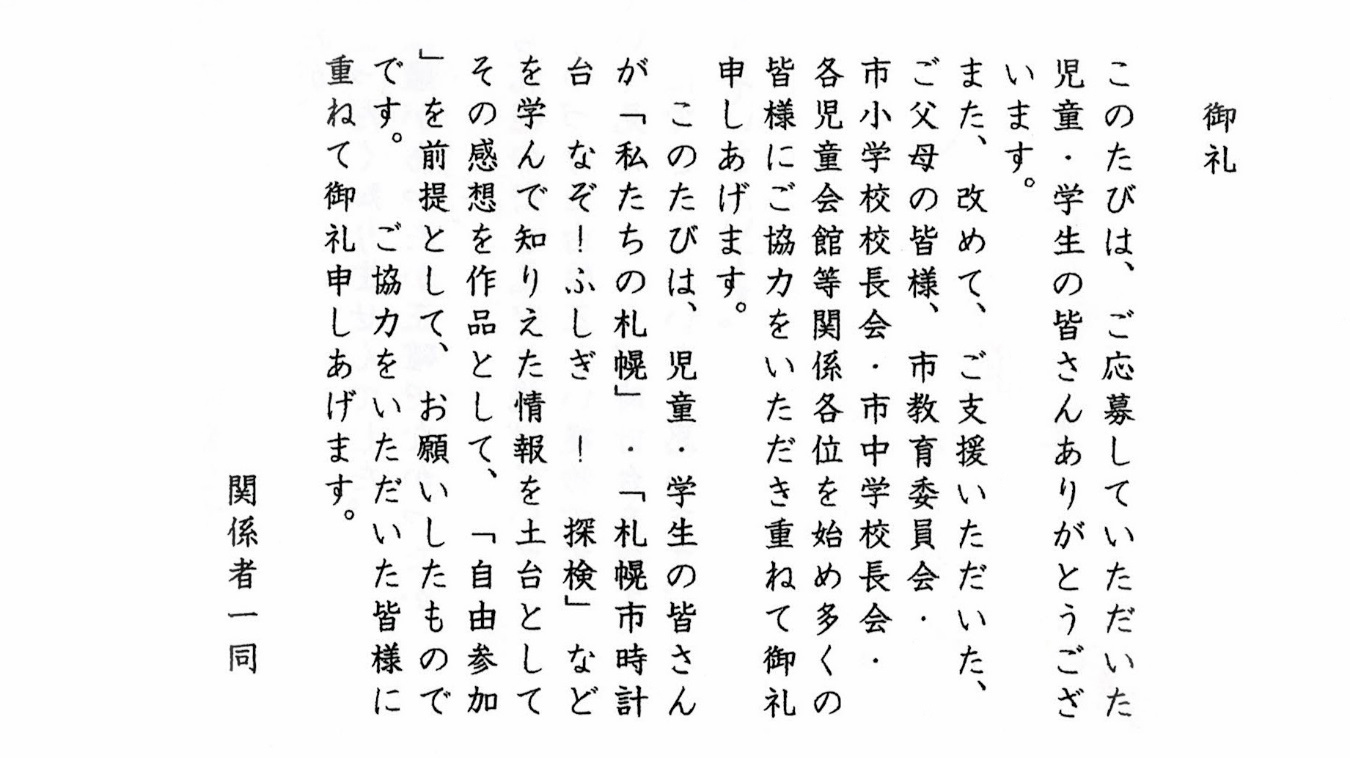 御礼
このたびは、ご応募していただいた
児童・学生の皆さんありがとうござ
います。
また、改めて、ご支援いただいた、
ご父母の皆様、市教育委員会・
市小学校校長会・市中学校長会・
各児童会館等関係各位を始め多くの
皆様にご協力をいただき重ねて御礼
申しあげます。
このたびは、児童・学生の皆さん
が「私たちの札幌」・「札幌市時計
台　なぞ！ふしぎ　！　探検」など
を学んで知りえた情報を土台として
その感想を作品として、「自由参加
」を前提として、お願いしたもので
です。　ご協力をいただいた皆様に
重ねて御礼申しあげます。
関係者一同